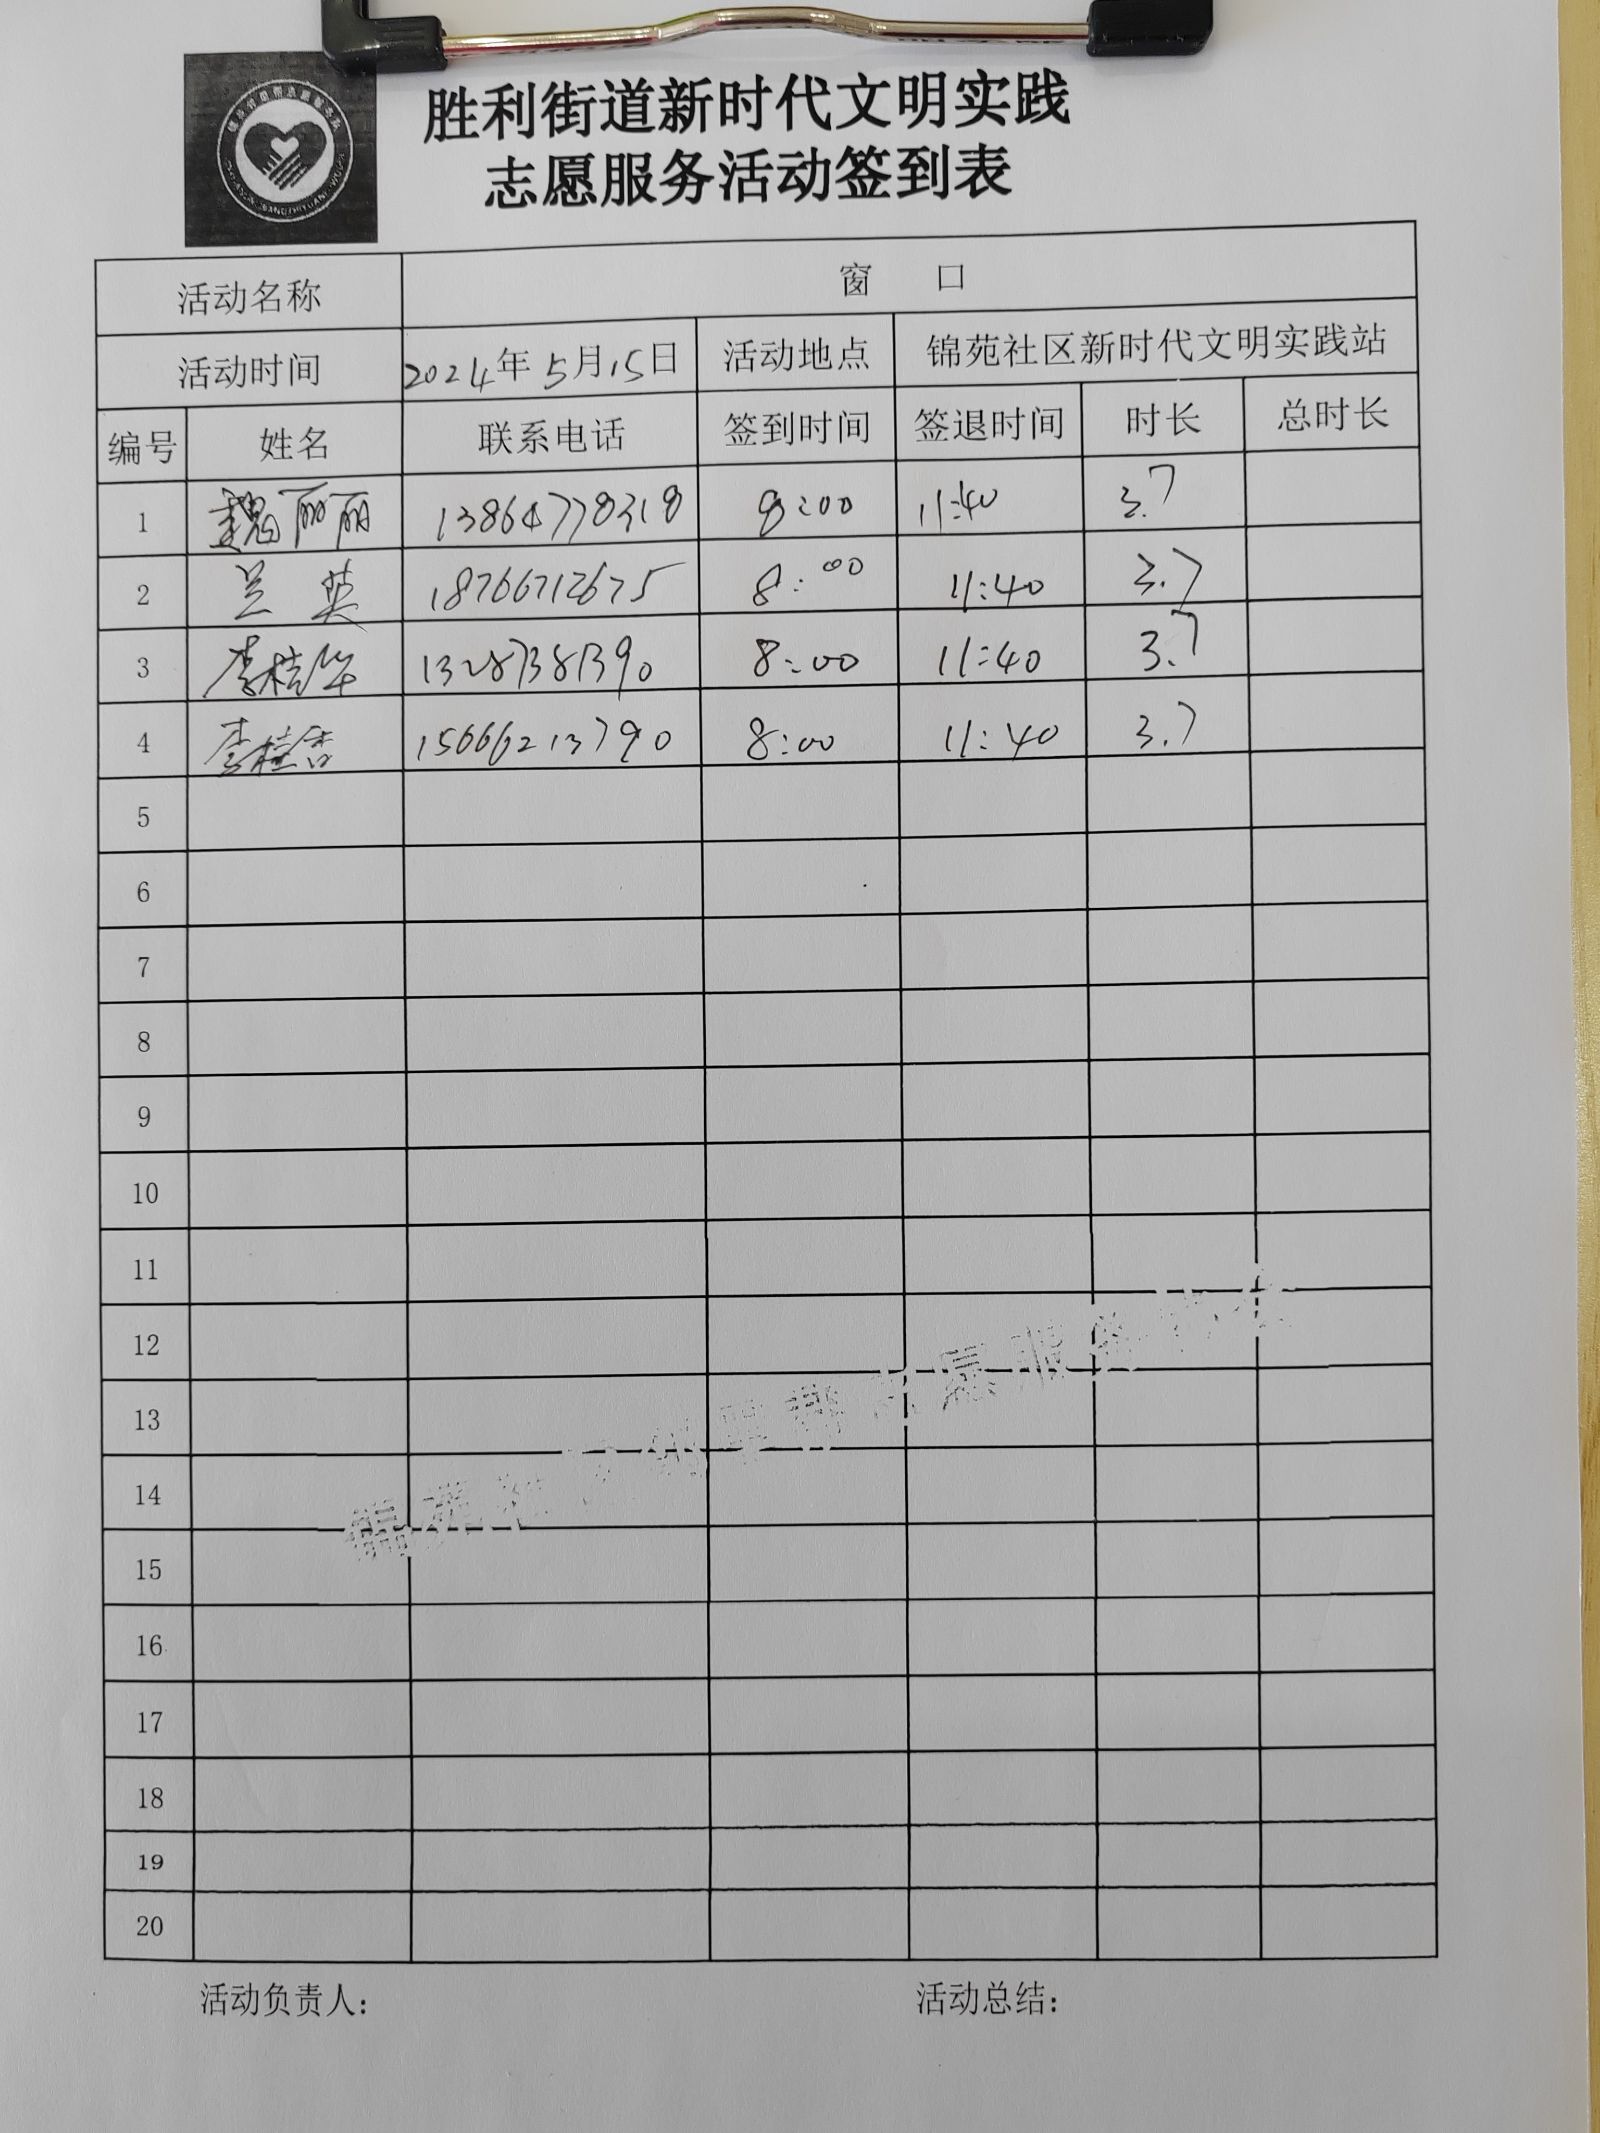 胜利街道新时代文明实践
志愿服务活动签到表
活动名称 窗 口
活动时间 2024年5月15日 活动地点 锦苑社区新时代文明实践站
编号 姓名 联系电话 签到时间 签退时间 时长 总时长
1 魏丽丽 13864778318 8:00 11:40 3.7
2 兰英 18766712675 8:00 11:40 3.7
3 李桂华 13287381390 8:00 11:40 3.7
4 李桂香 15666213790 8:00 11:40 3.7
5
6
7
8
9
10
11
12
13
14
15
16
17
18
19
20
活动负责人: 活动总结: